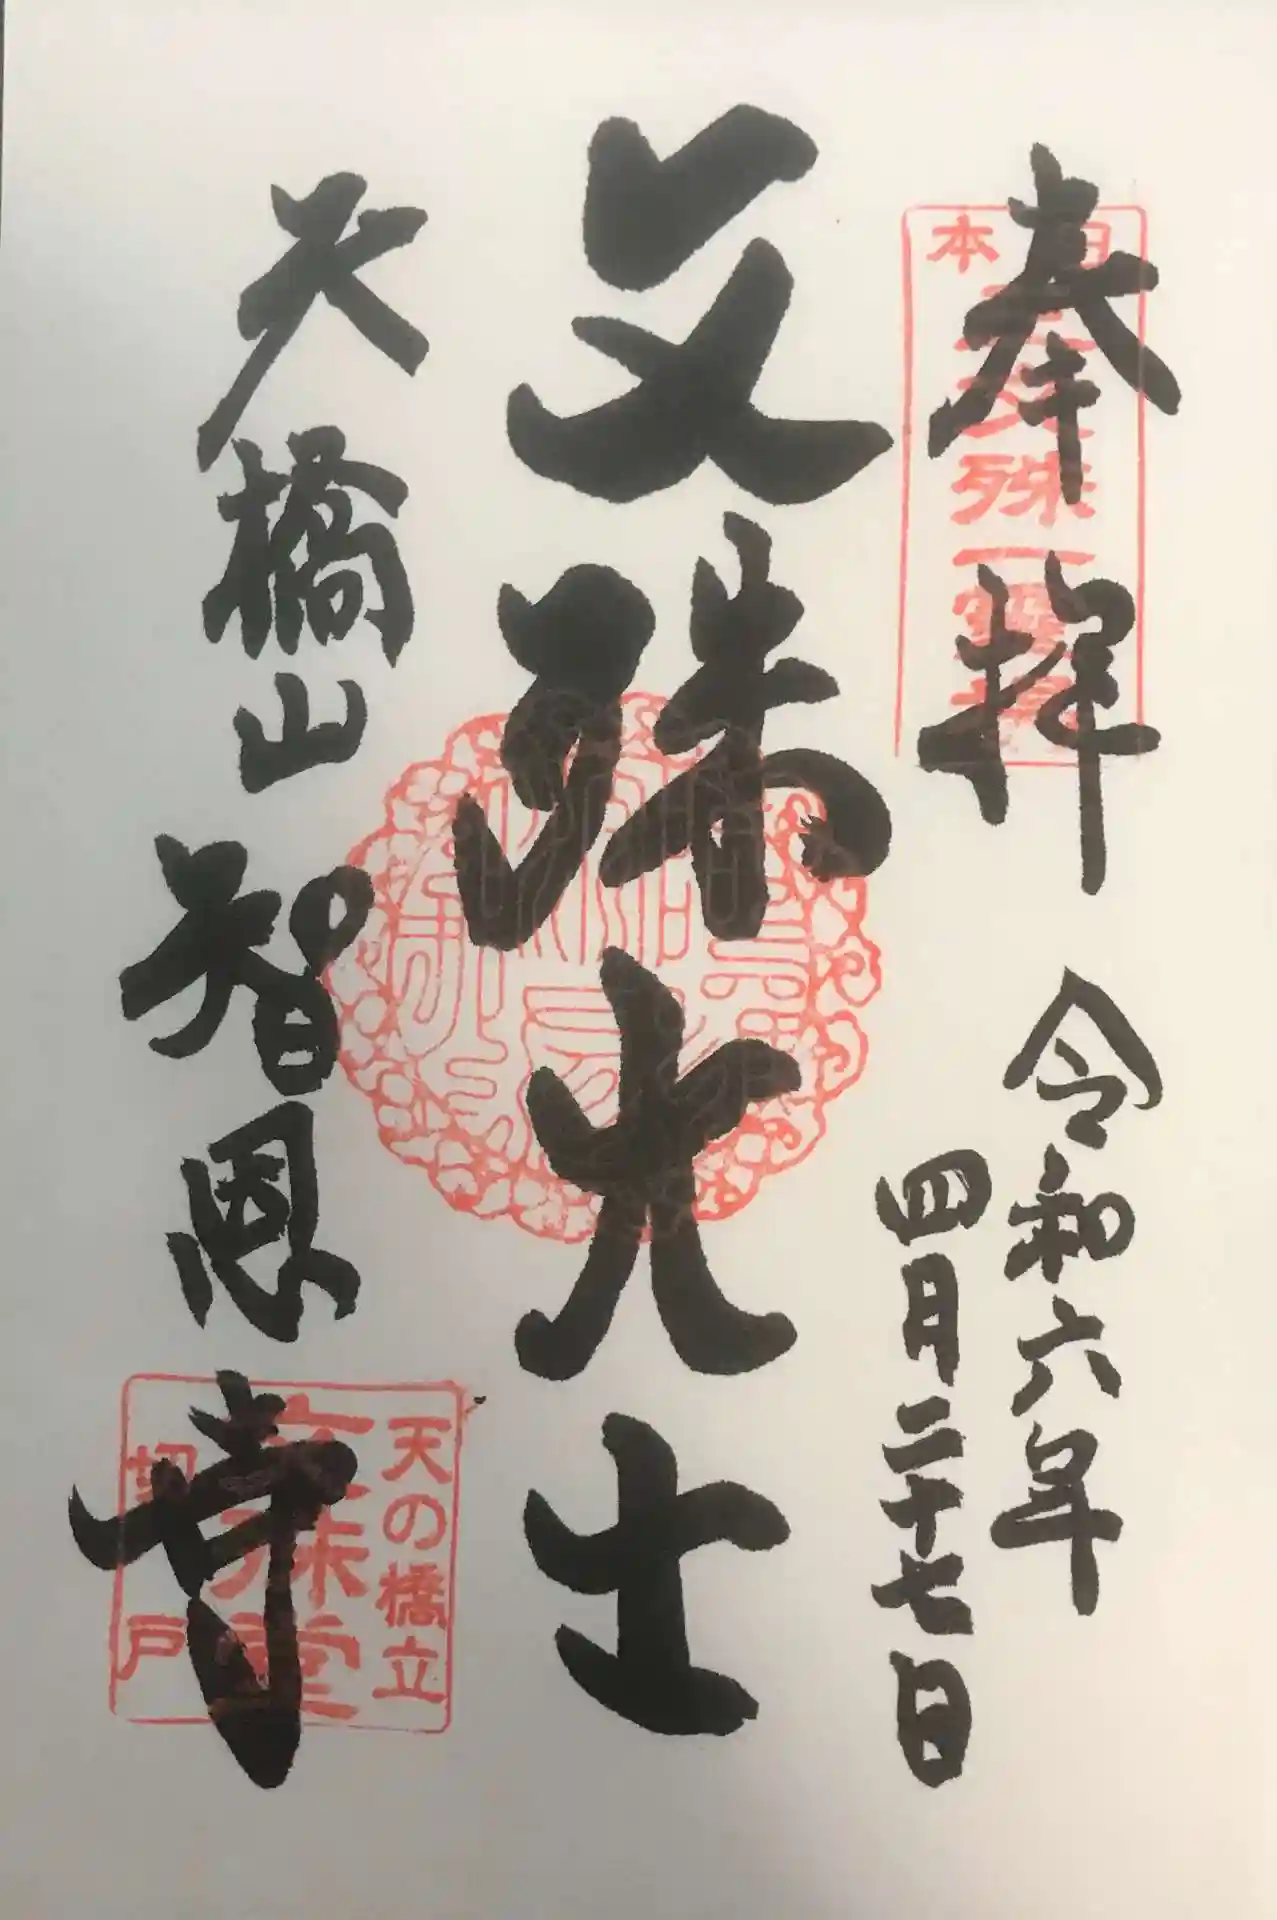 奉拝
令和六年
四月二十七日
日本三文殊一霊場
文殊大士
天橋山
智恩寺
天の橋立
文殊堂
切戸